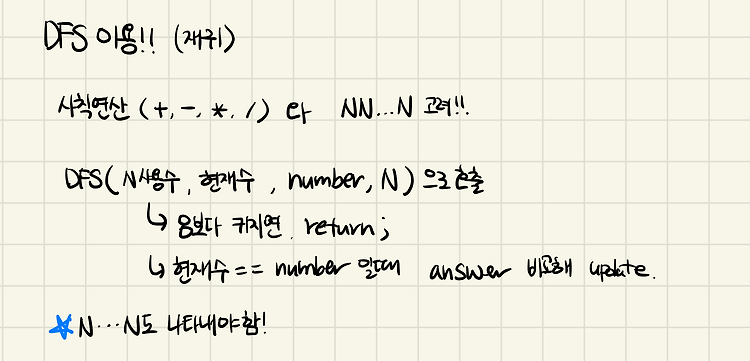 DFS 이용!! (재귀)
사칙연산 (+, -, *, /) 와 NN...N 고려!!
DFS(N사용수, 현재수, number, N) 으로 호출
↳ 8보다 커지면 return;
↳ 현재수 == number 일때 answer 비교해 update.
★ N...N도 나타내야함!